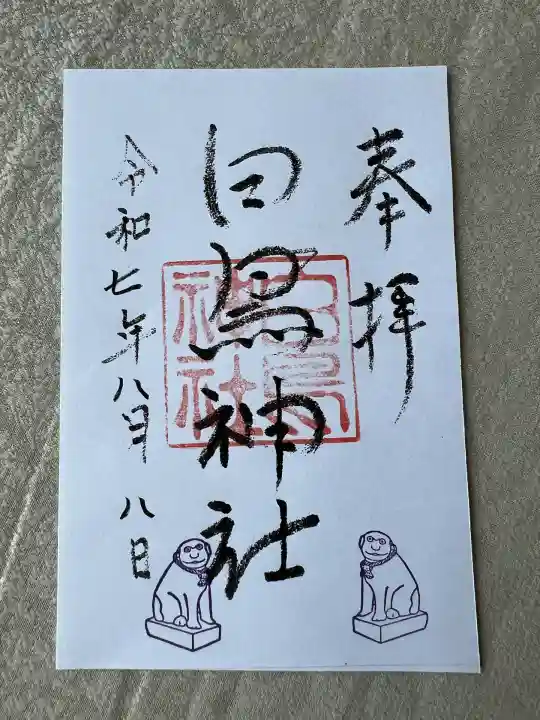 奉拝
白鳥神社
白鳥
神社
令和七年八月八日